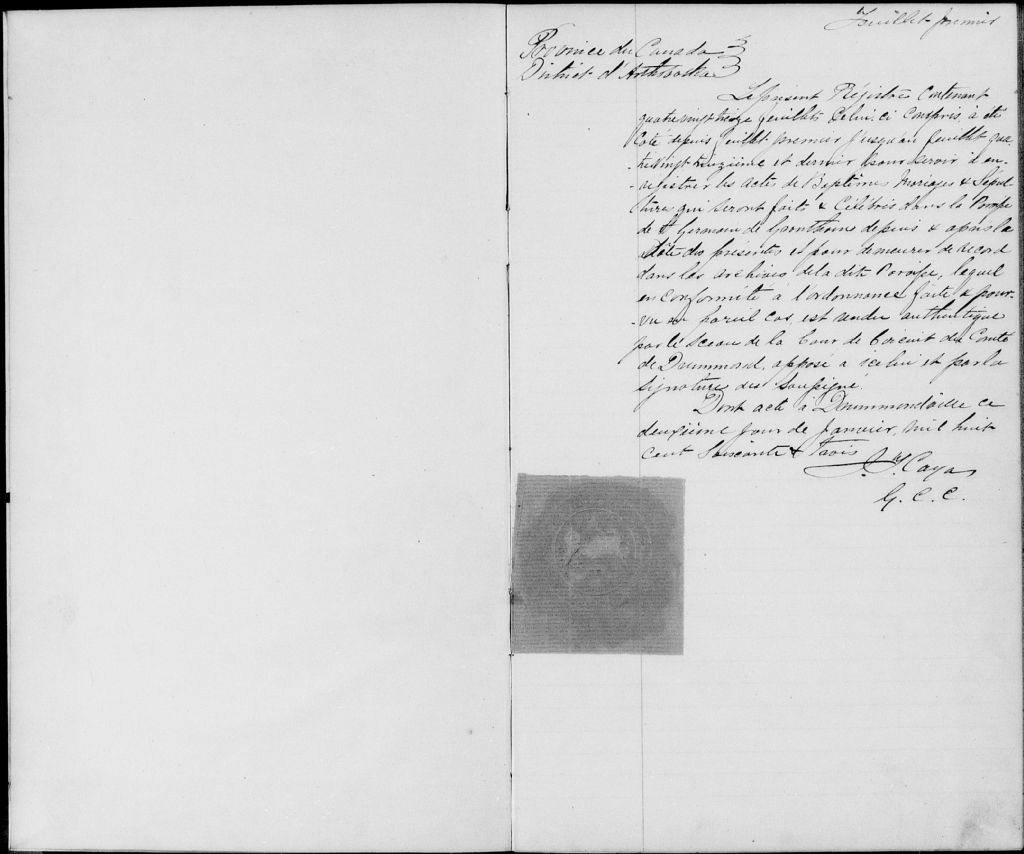 Feuillet premier
Province du Canada
District d'Arthabaska
Le présent Régistre contenant
quatre vingt treize feuillets celui-ci compris, a été
coté depuis feuillet premier jusqu'au feuillet qua-
-trevingt treizième et dernier pour servir à en-
-registrer les actes de Baptêmes Mariages & Sépul-
-tures qui seront faits & célébrés dans la Paroisse
de St Germain de Grantham depuis & après la
date des présentes et pour demeurer de record
dans les archives de la dite Paroisse, lequel
en conformité à l'ordonnance faite & pour-
-vu en pareil cas, est rendu authentique
par le sceau de la Cour de Circuit du Comté
de Drummond, apposé à icelui et par la
signature du soussigné.
Dont acte à Drummondville ce
deuxième jour de Janvier, mil huit
cent soixante & trois
J. Caya
G. C. C.